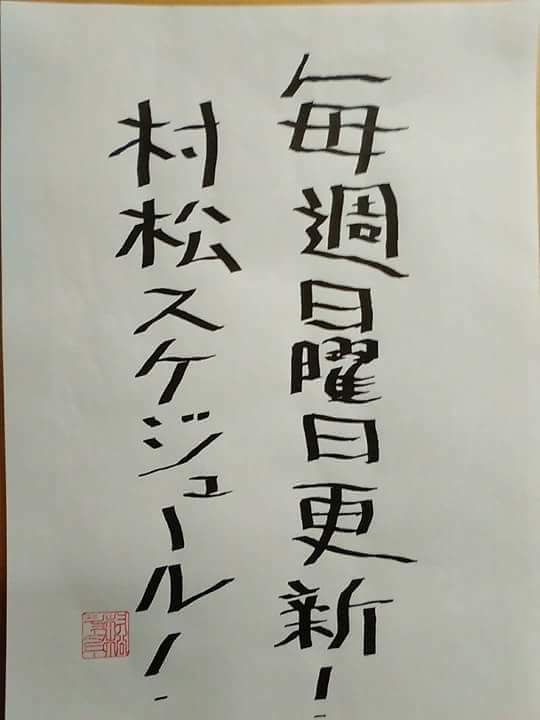 毎週日曜日更新!
村松スケジュール!